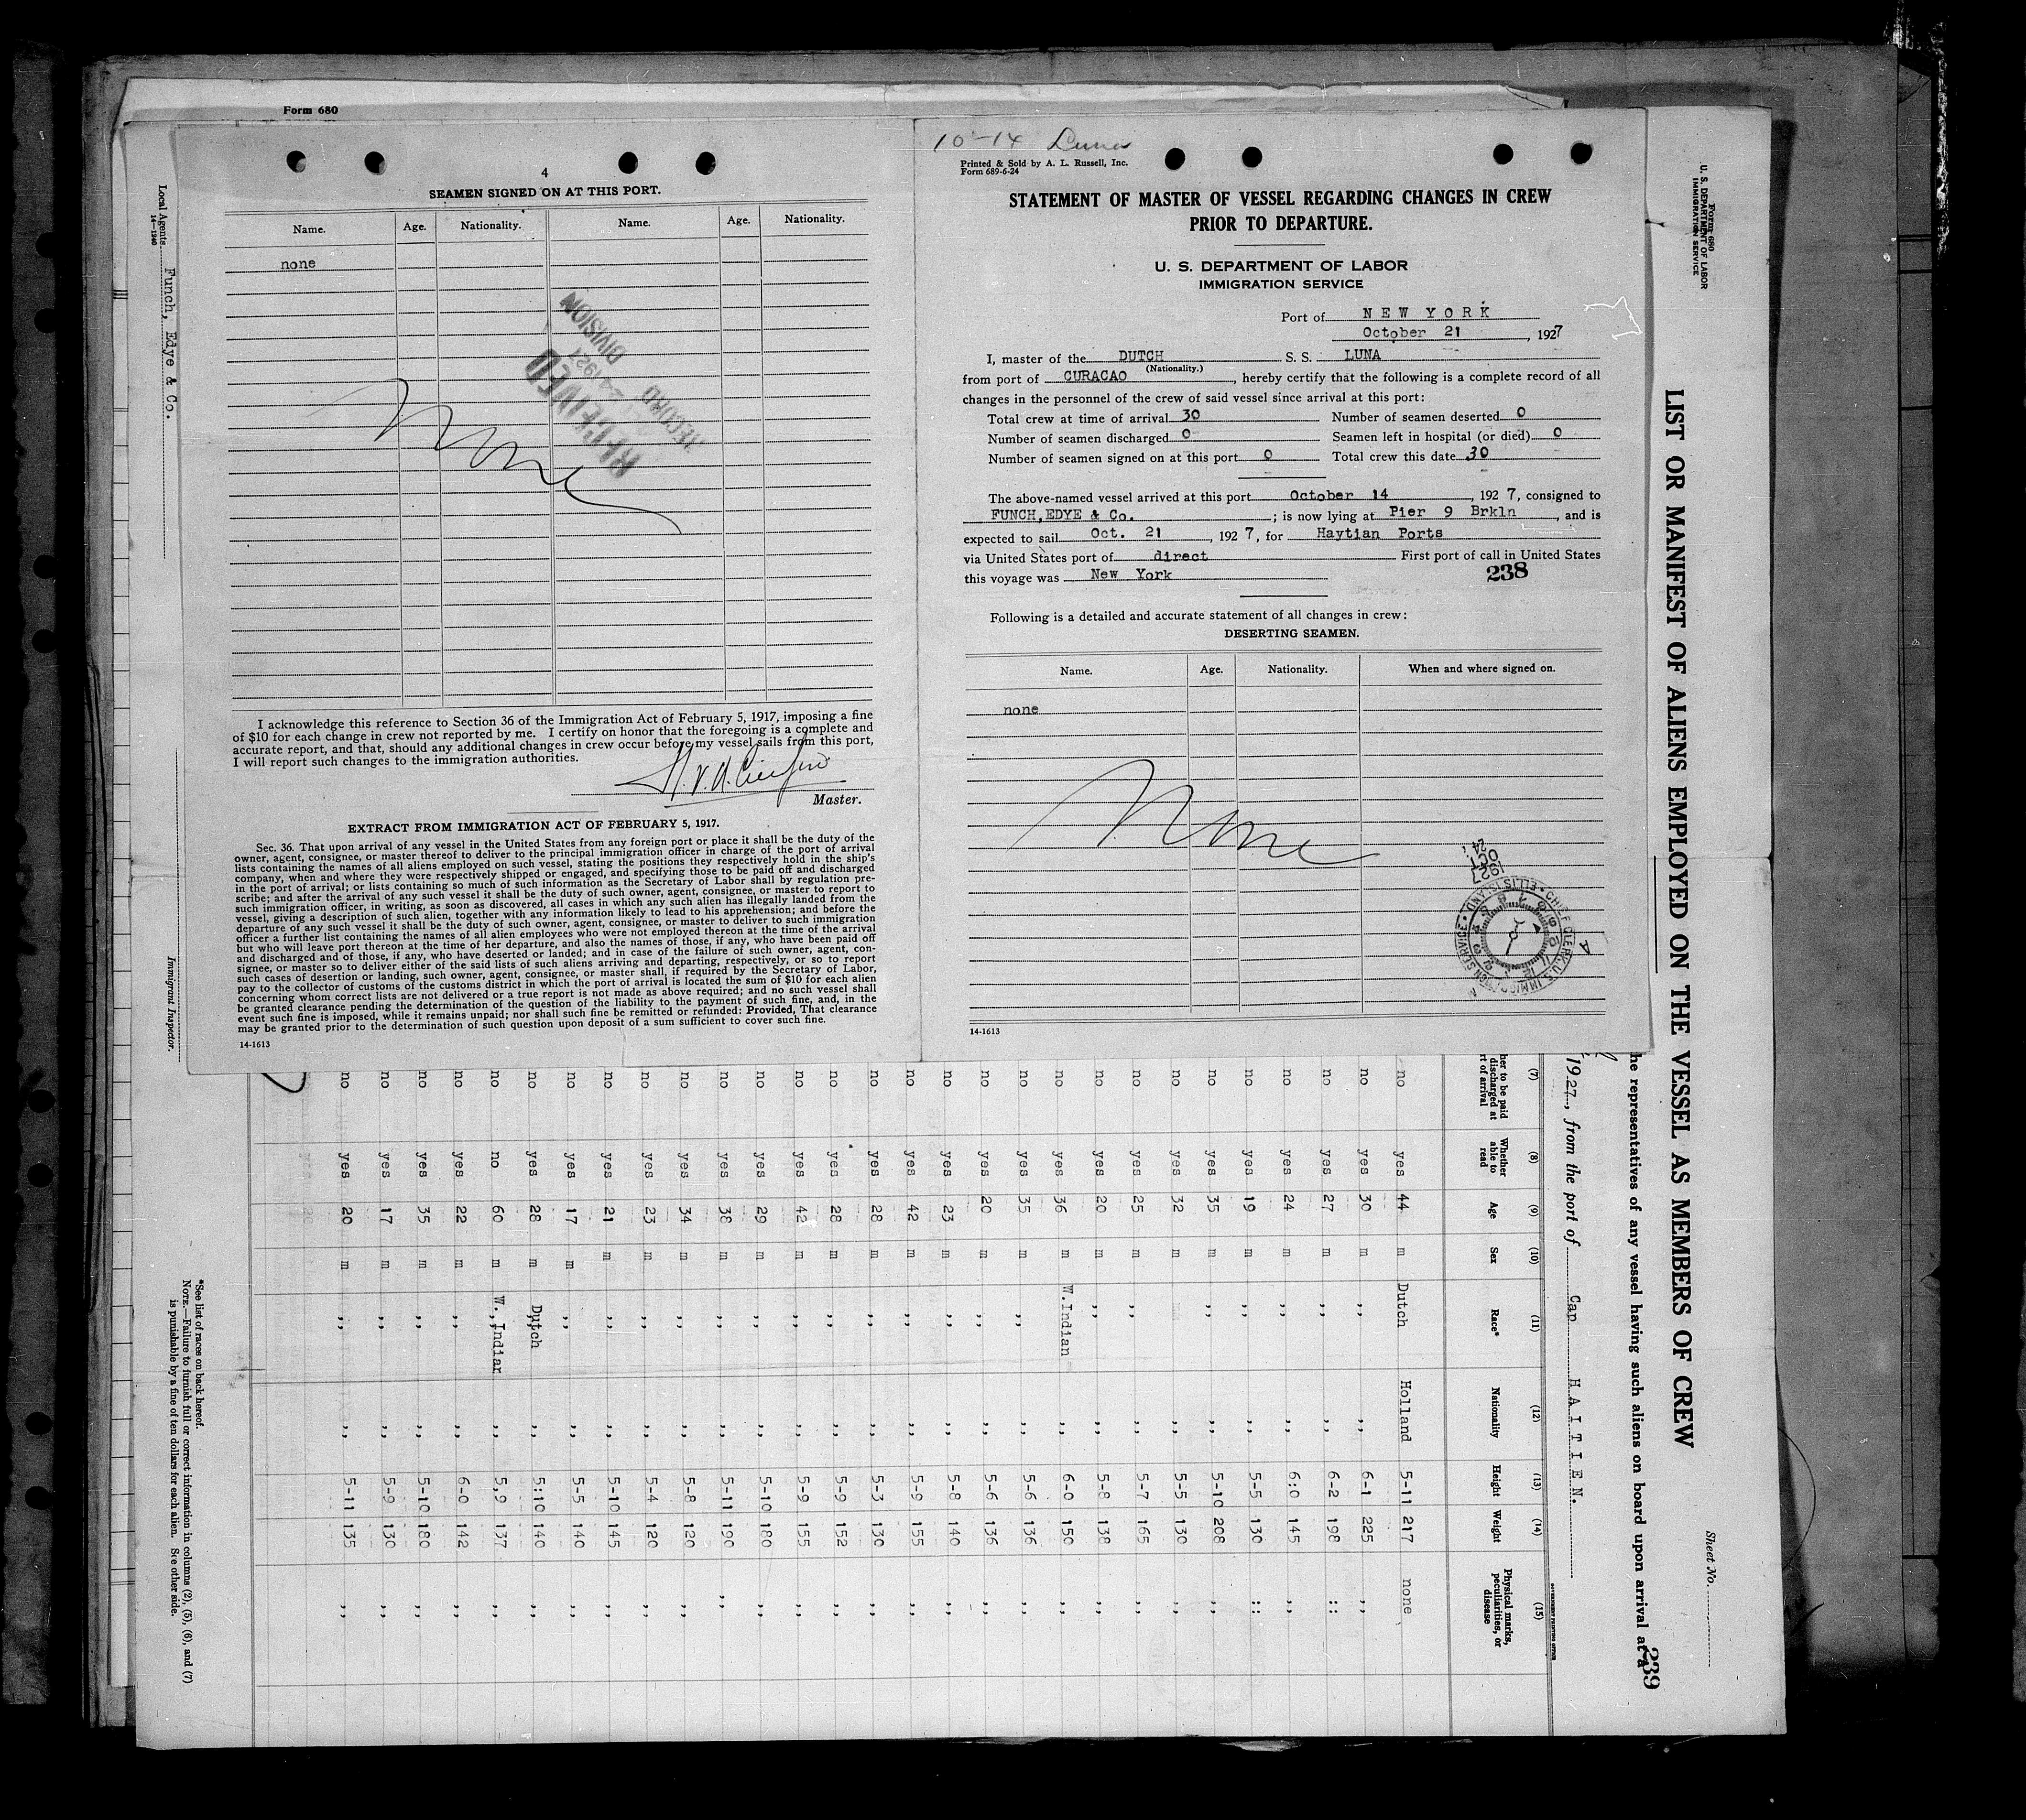 Form 680
4
SEAMEN SIGNED ON AT THIS PORT.
Name. Age. Nationality. Name. Age. Nationality.
none
None
RECEIVED
RECORD DIVISION
I acknowledge this reference to Section 36 of the Immigration Act of February 5, 1917, imposing a fine
of $10 for each change in crew not reported by me. I certify on honor that the foregoing is a complete and
accurate report, and that, should any additional changes in crew occur before my vessel sails from this port,
I will report such changes to the immigration authorities.
Master.
EXTRACT FROM IMMIGRATION ACT OF FEBRUARY 5, 1917.
Sec. 36. That upon arrival of any vessel in the United States from any foreign port or place it shall be the duty of the
owner, agent, consignee, or master thereof to deliver to the principal immigration officer in charge of the port of arrival
lists containing the names of all aliens employed on such vessel, stating the positions they respectively hold in the ship's
company, when and where they were respectively shipped or engaged, and specifying those to be paid off and discharged
in the port of arrival; or lists containing so much of such information as the Secretary of Labor shall by regulation pre-
scribe; and after the arrival of any such vessel it shall be the duty of such owner, agent, consignee, or master to report to
such immigration officer, in writing, as soon as discovered, all cases in which any such alien has illegally landed from the
vessel, giving a description of such alien, together with any information likely to lead to his apprehension; and before the
departure of any such vessel it shall be the duty of such owner, agent, consignee, or master to deliver to such immigration
officer a further list containing the names of all alien employees who were not employed thereon at the time of the arrival
but who will leave port thereon at the time of her departure, and also the names of those, if any, who have been paid off
and discharged and of those, if any, who have deserted or landed; and in case of the failure of such owner, agent, con-
signee, or master so to deliver either of the said lists of such aliens arriving and departing, respectively, or so to report
such cases of desertion or landing, such owner, agent, consignee, or master shall, if required by the Secretary of Labor,
pay to the collector of customs of the customs district in which the port of arrival is located the sum of $10 for each alien
concerning whom correct lists are not delivered or a true report is not made as above required; and no such vessel shall
be granted clearance pending the determination of the question of the liability to the payment of such fine, and, in the
event such fine is imposed, while it remains unpaid; nor shall such fine be remitted or refunded: Provided, That clearance
may be granted prior to the determination of such question upon deposit of a sum sufficient to cover such fine.
14-1613
10-14 Luna
Printed & Sold by A. L. Russell, Inc.
Form 689-6-24
STATEMENT OF MASTER OF VESSEL REGARDING CHANGES IN CREW
PRIOR TO DEPARTURE.
U. S. DEPARTMENT OF LABOR
IMMIGRATION SERVICE
Port of NEW YORK
October 21, 1927
I, master of the DUTCH S. S. LUNA
(Nationality.)
from port of CURACAO, hereby certify that the following is a complete record of all
changes in the personnel of the crew of said vessel since arrival at this port:
Total crew at time of arrival 30 Number of seamen deserted 0
Number of seamen discharged 0 Seamen left in hospital (or died) 0
Number of seamen signed on at this port 0 Total crew this date 30
The above-named vessel arrived at this port October 14, 1927, consigned to
FUNCH, EDYE & Co.; is now lying at Pier 9 Brkln, and is
expected to sail Oct. 21, 1927, for Haytian Ports
via United States port of direct First port of call in United States
this voyage was New York
238
Following is a detailed and accurate statement of all changes in crew:
DESERTING SEAMEN.
Name. Age. Nationality. When and where signed on.
none
None
1927 OCT 24
CHIEF CLERK, U.S. IMMIGRATION SERVICE • ELLIS ISLAND
14-1613
Form 680
U. S. DEPARTMENT OF LABOR
IMMIGRATION SERVICE
Sheet No.
LIST OR MANIFEST OF ALIENS EMPLOYED ON THE VESSEL AS MEMBERS OF CREW
he representatives of any vessel having such aliens on board upon arrival at a
239
1927, from the port of Cap HAITIEN.
(7) (8) (9) (10) (11) (12) (13) (14) (15)
her to be paid discharged at rt of arrival Whether able to read Age Sex Race* Nationality Height Weight Physical marks, peculiarities, or disease
no yes 44 m Dutch Holland 5-11 217 none
no yes 30 m ,, ,, 6-1 225 ,,
no yes 27 m ,, ,, 6-2 198 ::
no yes 24 m ,, ,, 6:0 145 ,,
no yes 19 m ,, ,, 5-5 130 ::
no yes 35 m ,, ,, 5-10 208 ,,
no yes 32 m ,, 5-5 130 ,,
no yes 25 m ,, ,, 5-7 165 ,,
no yes 20 m ,, ,, 5-8 138 ,,
no yes 36 m W.Indian ,, 6-0 150 ,,
no yes 35 m ,, ,, 5-6 136 ,,
no yes 20 m ,, ,, 5-6 136 ,,
no yes 23 m ,, ,, 5-8 140 ,,
no yes 42 m ,, ,, 5-9 155 ,,
no yes 28 m ,, ,, 5-3 130 ,,
no yes 28 m ,, ,, 5-9 152 ,,
no yes 42 m ,, ,, 5-9 155 ,,
no yes 29 m ,, ,, 5-10 180 ,,
no yes 38 m ,, ,, 5-11 190 ,,
no yes 34 m ,, ,, 5-8 120 ,,
no yes 23 m ,, ,, 5-4 120 ,,
no yes 21 m ,, ,, 5-10 145 ,,
no yes 17 m ,, ,, 5-5 140 ,,
no yes 28 m Dutch ,, 5:10 140 ,,
no no 60 m W.,Indian ,, 5,9 137 ,,
no yes 22 m ,, ,, 6-0 142 ,,
no yes 35 m ,, ,, 5-10 180 ,,
no yes 17 m ,, ,, 5-9 130 ,,
no yes 20 m ,, ,, 5-11 135 ,,
*See list of races on back hereof.
NOTE.—Failure to furnish full or correct information in columns (2), (5), (6), and (7)
is punishable by a fine of ten dollars for each alien. See other side.
Local Agents Funch, Edye & Co.
14-1240
Immigrant Inspector.